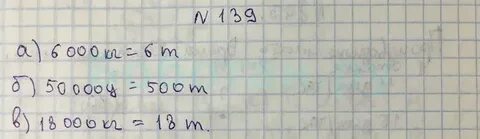 N 139
а) 6000кг = 6 т
б) 50000ц = 500т
в) 18000кг = 18 т.